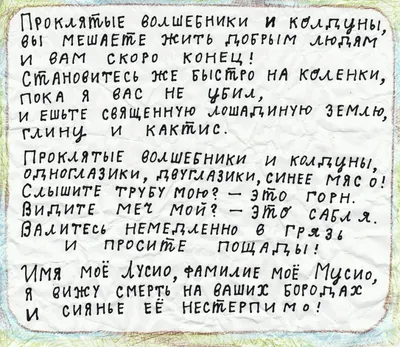 Проклятые волшебники и колдуны,
вы мешаете жить добрым людям
и вам скоро конец!
Становитесь же быстро на коленки,
пока я вас не убил,
и ешьте священную лошадиную землю,
глину и кактис.
Проклятые волшебники и колдуны,
одноглазики, двуглазики, синее мясо!
Слышите трубу мою? – это горн.
Видите меч мой? – это сабля.
Валитесь немедленно в грязь
и просите пощады!
Имя моё Лусио, фамилие моё Мусио,
я вижу смерть на ваших бородах
и сиянье её нестерпимо!